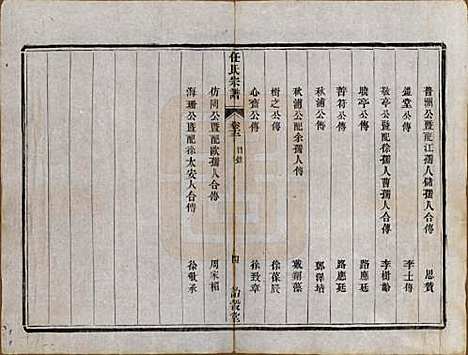 晉洲公暨配江孺人儲孺人合傳 恩贊
蓮堂公傳 李士傳
敬亭公暨配徐孺人曹孺人合傳 李樹齡
駿亭公傳 路應廷
普符公傳 路應廷
秋浦公傳 鄧澤培
秋浦公配余孺人傳 戴翊藻
樹之公傳 徐葆辰
心齋公傳 徐致章
仿陶公暨配歐孺人合傳 周家楣
海珊公暨配徐太安人合傳 徐敬承
任氏宗譜 卷三 目錄 四